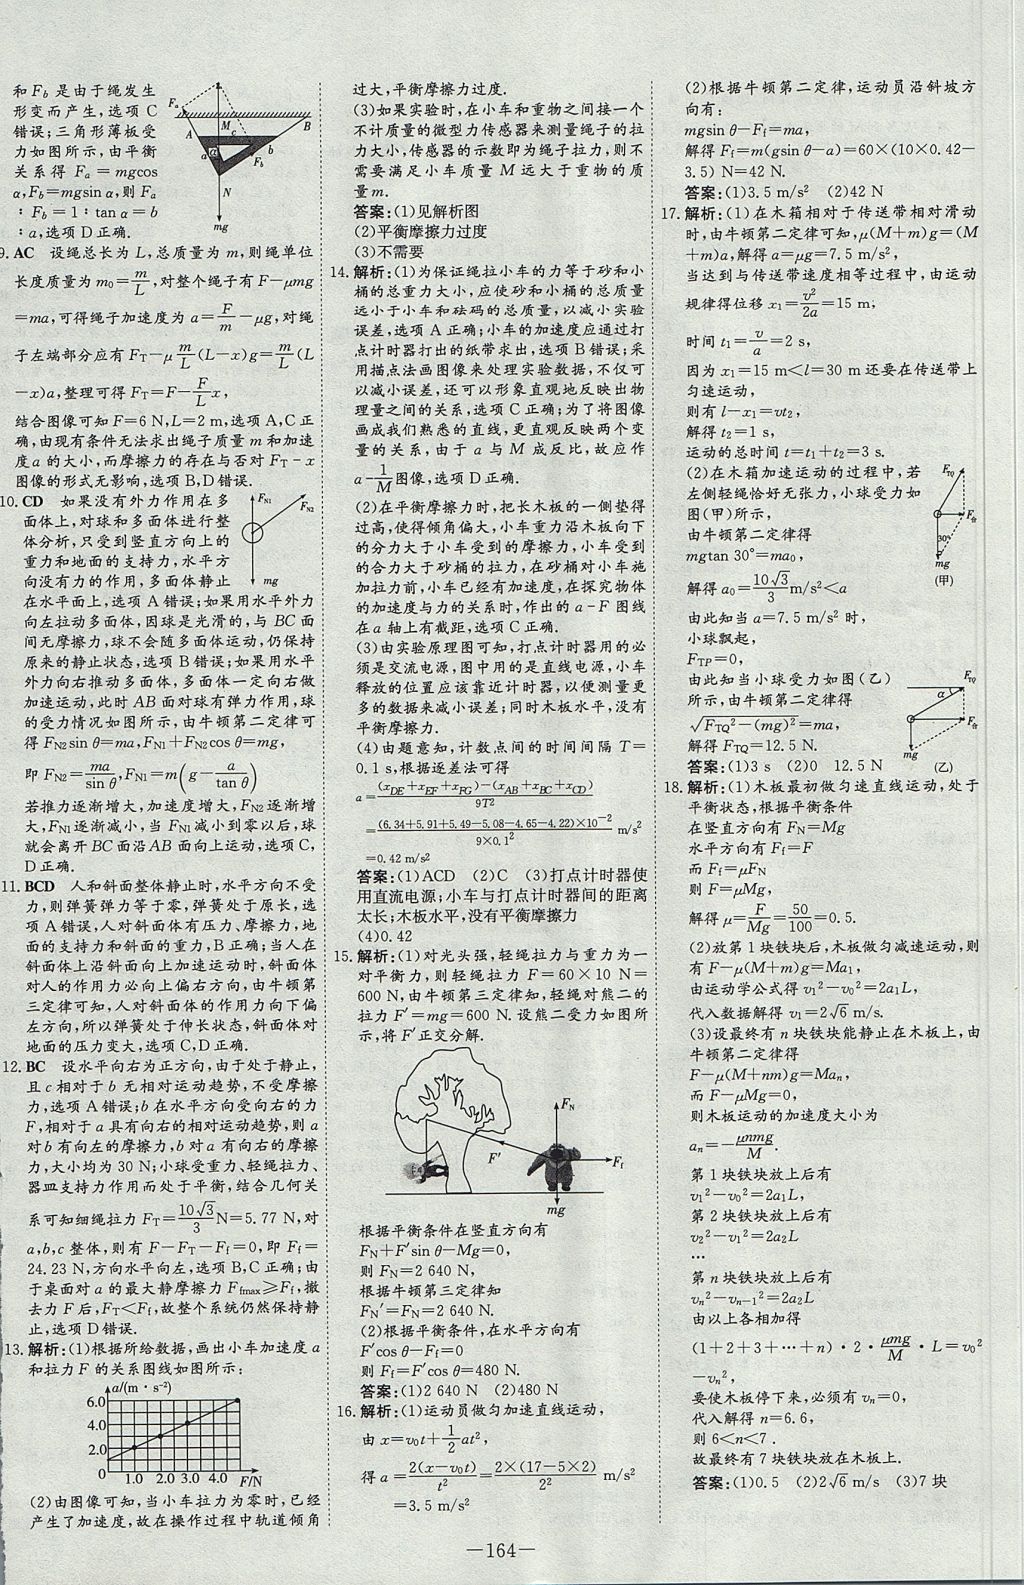 和 F_b 是由于绳发生
形变而产生,选项 C
错误;三角形薄板受
力如图所示,由平衡
关系得 F_a = mgcos
α,F_b=mgsin α,则 F_a
∶F_b=1∶tan α=b
∶a,选项 D 正确.
F_a
A
M
c
B
a
α
b
F_b
N
mg
9. AC 设绳总长为 L,总质量为 m,则绳单位
长度质量为 m₀=m/L,对整个绳子有 F-μmg
=ma,可得绳子加速度为 a=F/m-μg,对绳
子左端部分应有 F_T-μ m/L(L-x)g=m/L(L
-x)a,整理可得 F_T=F-F/L x,
结合图像可知 F=6 N,L=2 m,选项 A,C 正
确,由现有条件无法求出绳子质量 m 和加速
度 a 的大小,而摩擦力的存在与否对 F_T-x
图像的形式无影响,选项 B,D 错误.
10. CD 如果没有外力作用在多
面体上,对球和多面体进行整
体分析,只受到竖直方向上的
重力和地面的支持力,水平方
向没有力的作用,多面体静止
F_N1
F_N2
mg
在水平面上,选项 A 错误;如果用水平外力
向左拉动多面体,因球是光滑的,与 BC 面
间无摩擦力,球不会随多面体运动,仍保持
原来的静止状态,选项 B 错误;如果用水平
外力向右推动多面体,多面体一定向右做
加速运动,此时 AB 面对球有弹力作用,球
的受力情况如图所示,由牛顿第二定律可
得 F_N2 sin θ=ma,F_N1+F_N2 cos θ=mg,
即 F_N2=ma/sin θ,F_N1=m(g-a/tan θ)
若推力逐渐增大,加速度增大,F_N2 逐渐增
大,F_N1 逐渐减小,当 F_N1 减小到零以后,球
就会离开 BC 面沿 AB 面向上运动,选项 C,
D 正确.
11. BCD 人和斜面整体静止时,水平方向不受
力,则弹簧弹力等于零,弹簧处于原长,选
项 A 错误,人对斜面体有压力、摩擦力,地
面的支持力和斜面的重力,B 正确;当人在
斜面体上沿斜面向上加速运动时,斜面体
对人的作用力必向上偏右方向,由牛顿第
三定律可知,人对斜面体的作用力向下偏
左方向,所以弹簧处于伸长状态,斜面体对
地面的压力变大,选项 C,D 正确.
12. BC 设水平向右为正方向,由于处于静止,
且 c 相对于 b 无相对运动趋势,不受摩擦
力,选项 A 错误;b 在水平方向受向右的力
F,相对于 a 具有向右的相对运动趋势,则 a
对 b 有向左的摩擦力,b 对 a 有向右的摩擦
力,大小均为 30 N;小球受重力、轻绳拉力、
器皿支持力作用而处于平衡,结合几何关
系可知细绳拉力 F_T=10√3/3 N=5.77 N,对
a,b,c 整体,则有 F-F_T-F_f=0,即 F_f=
24.23 N,方向水平向左,选项 B,C 正确;由
于桌面对 a 的最大静摩擦力 F_fmax≥F_f,撤
去力 F 后,F_T<F_f,故整个系统仍然保持静
止,选项 D 错误.
13. 解析:(1)根据所给数据,画出小车加速度 a
和拉力 F 的关系图线如图所示:
a/(m·s⁻²)
6.0
4.0
2.0
0
1.0 2.0 3.0 4.0 F/N
(2)由图像可知,当小车拉力为零时,已经
产生了加速度,故在操作过程中轨道倾角
过大,平衡摩擦力过度.
(3)如果实验时,在小车和重物之间接一个
不计质量的微型力传感器来测量绳子的拉
力大小,传感器的示数即为绳子拉力,则不
需要满足小车质量 M 远大于重物的质
量 m.
答案:(1)见解析图
(2)平衡摩擦力过度
(3)不需要
14. 解析:(1)为保证绳拉小车的力等于砂和小
桶的总重力大小,应使砂和小桶的总质量
远小于小车和砝码的总质量,以减小实验
误差,选项 A 正确;小车的加速度应通过打
点计时器打出的纸带求出,选项 B 错误;采
用描点法画图像来处理实验数据,不仅可
以减小误差,还可以形象直观地反映出物
理量之间的关系,选项 C 正确;为了将图像
画成我们熟悉的直线,更直观反映两个变
量的关系,由于 a 与 M 成反比,故应作
a-1/M 图像,选项 D 正确.
(2)在平衡摩擦力时,把长木板的一侧垫得
过高,使得倾角偏大,小车重力沿木板向下
的分力大于小车受到的摩擦力,小车受到
的合力大于砂桶的拉力,在砂桶对小车施
加拉力前,小车已经有加速度,在探究物体
的加速度与力的关系时,作出的 a-F 图线
在 a 轴上有截距,选项 C 正确.
(3)由实验原理图可知,打点计时器用的必
须是交流电源,图中用的是直线电源,小车
释放的位置应该靠近计时器,以便测量更
多的数据来减小误差;同时木板水平,没有
平衡摩擦力.
(4)由题意知,计数点间的时间间隔 T=
0.1 s,根据逐差法可得
a=(x_DE+x_EF+x_FG)-(x_AB+x_BC+x_CD)/9T²
=(6.34+5.91+5.49-5.08-4.65-4.22)×10⁻²/9×0.1² m/s²
=0.42 m/s²
答案:(1)ACD (2)C (3)打点计时器使
用直流电源;小车与打点计时器间的距离
太长;木板水平,没有平衡摩擦力
(4)0.42
15. 解析:(1)对光头强,轻绳拉力与重力为一
对平衡力,则轻绳拉力 F=60×10 N=
600 N,由牛顿第三定律知,轻绳对熊二的
拉力 F′=mg=600 N.设熊二受力如图所
示,将 F′正交分解.
F_N
F′
F_f
mg
根据平衡条件在竖直方向有
F_N+F′sin θ-Mg=0,
则 F_N=2 640 N.
根据牛顿第三定律知
F_N′=F_N=2 640 N.
(2)根据平衡条件,在水平方向有
F′cos θ-F_f=0
则 F_f=F′cos θ=480 N.
答案:(1)2 640 N (2)480 N
16. 解析:(1)运动员做匀加速直线运动,
由 x=v₀t+1/2 at²,
得 a=2(x-v₀t)/t²=2×(17-5×2)/2² m/s²
=3.5 m/s²
(2)根据牛顿第二定律,运动员沿斜坡方
向有:
mgsin θ-F_f=ma,
解得 F_f=m(gsin θ-a)=60×(10×0.42-
3.5) N=42 N.
答案:(1)3.5 m/s² (2)42 N
17. 解析:(1)在木箱相对于传送带相对滑动
时,由牛顿第二定律可知,μ(M+m)g=(M
+m)a,解得 a=μg=7.5 m/s²,
当达到与传送带速度相等过程中,由运动
规律得位移 x₁=v²/2a=15 m,
时间 t₁=v/a=2 s,
因为 x₁=15 m<l=30 m 还要在传送带上
匀速运动,
则有 l-x₁=vt₂,
解得 t₂=1 s,
运动的总时间 t=t₁+t₂=3 s.
(2)在木箱加速运动的过程中,若
左侧轻绳恰好无张力,小球受力如
图(甲)所示,
由牛顿第二定律得
mgtan 30°=ma₀,
解得 a₀=10√3/3 m/s²<a
由此可知当 a=7.5 m/s² 时,
小球飘起,
F_TP=0,
由此可知当小球受力如图(乙)
所示,由牛顿第二定律得
√F_TQ²-(mg)²=ma,
解得 F_TQ=12.5 N.
F_TQ
F_合
30°
mg
(甲)
F_TQ
α
F_合
mg
(乙)
答案:(1)3 s (2)0 12.5 N
18. 解析:(1)木板最初做匀速直线运动,处于
平衡状态,根据平衡条件
在竖直方向有 F_N=Mg
水平方向有 F_f=F
而 F_f=μF_N
则 F=μMg,
解得 μ=F/Mg=50/100=0.5.
(2)放第 1 块铁块后,木板做匀减速运动,则
有 F-μ(M+m)g=Ma₁,
由运动学公式得 v₁²-v₀²=2a₁L,
代入数据解得 v₁=2√6 m/s.
(3)设最终有 n 块铁块能静止在木板上,由
牛顿第二定律得
F-μ(M+nm)g=Ma_n,
而 F-μMg=0,
则木板运动的加速度大小为
a_n=-μnmg/M.
第 1 块铁块放上后有
v₁²-v₀²=2a₁L,
第 2 块铁块放上后有
v₂²-v₁²=2a₂L
…
第 n 块铁块放上后有
v_n²-v_n-1²=2a₂L
由以上各相加得
(1+2+3+…+n)·2·μmg/M·L=v₀²
-v_n²,
要使木板停下来,必须有 v_n=0,
代入解得 n=6.6,
则 6<n<7.
故最终有 7 块铁块放在木板上.
答案:(1)0.5 (2)2√6 m/s (3)7 块
—164—